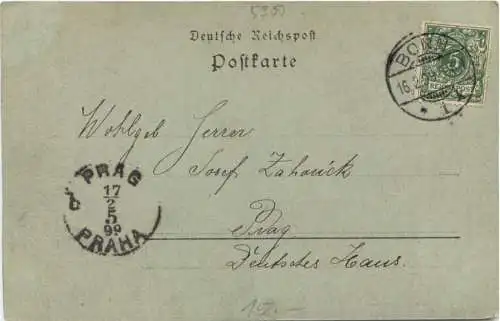 Deutsche Reichspost
Postkarte
BONN
16.2
* 1.
5
Wohlgeb Herrn
Josef Zahouřick
Prag
Deutsches Haus.
PRAG
17/2
5
99
PRAHA
15.-